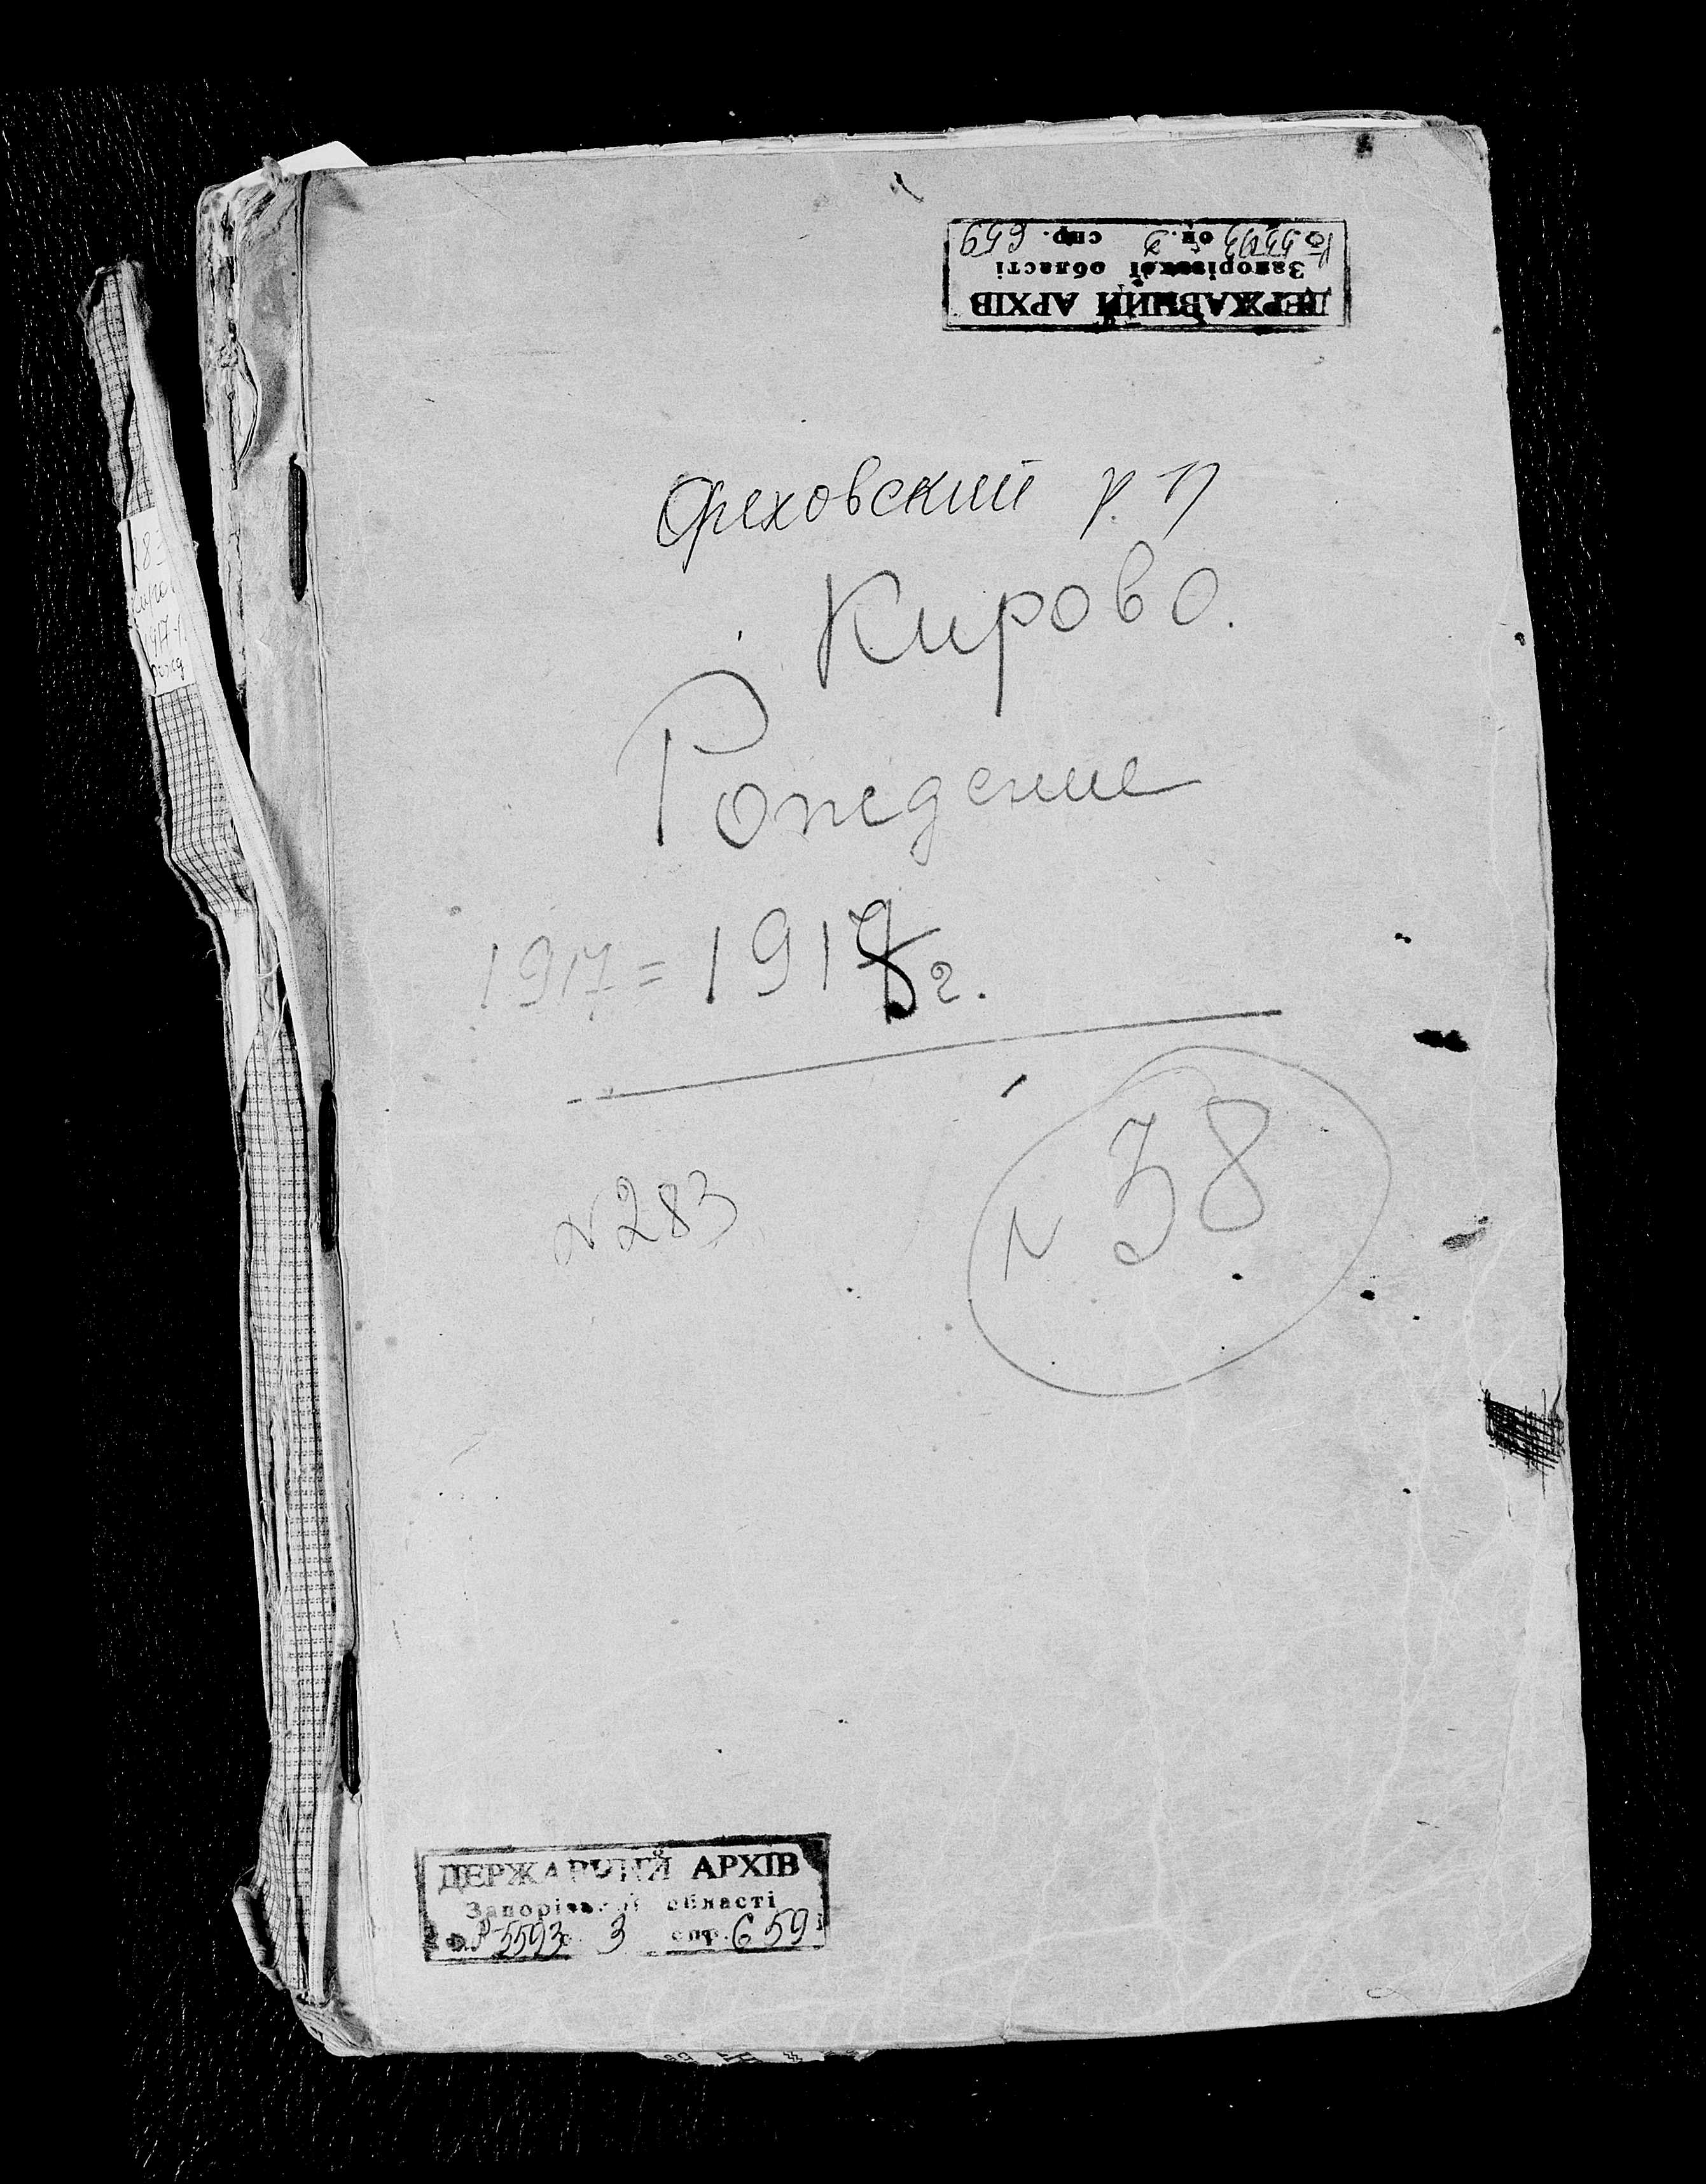 ДЕРЖАВНИЙ АРХІВ
Запорізької області
оп. 3 спр. 659
Ореховский р-н
Кирово.
Рождение
1917 = 1918 г.
N 283
N 38
283
1917
ДЕРЖАВНИЙ АРХІВ
Запорізької області
ф. Р-5593 3 спр. 659